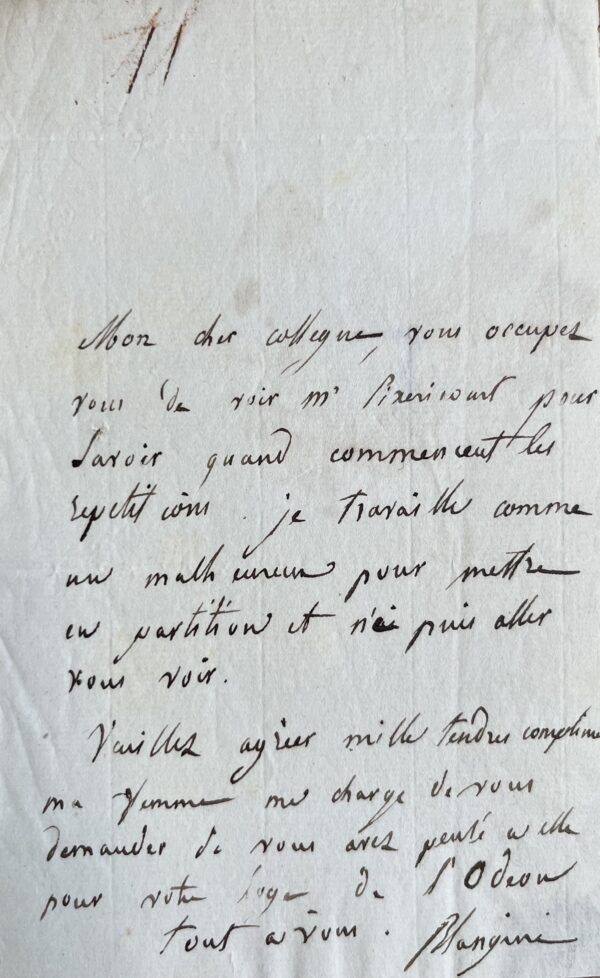 Mon cher collegue, vous occupez
vous de voir Mr Pixericourt pour
Savoir quand commencent les
repetitions. je travaille comme
un malheureux pour mettre
en partition et n'ai puis aller
vous voir.
Veuillez agréer mille tendres complime
ma femme me charge de vous
demander si vous avez pensé a elle
pour votre loge de l'Odeon
tout a vous. Blangini